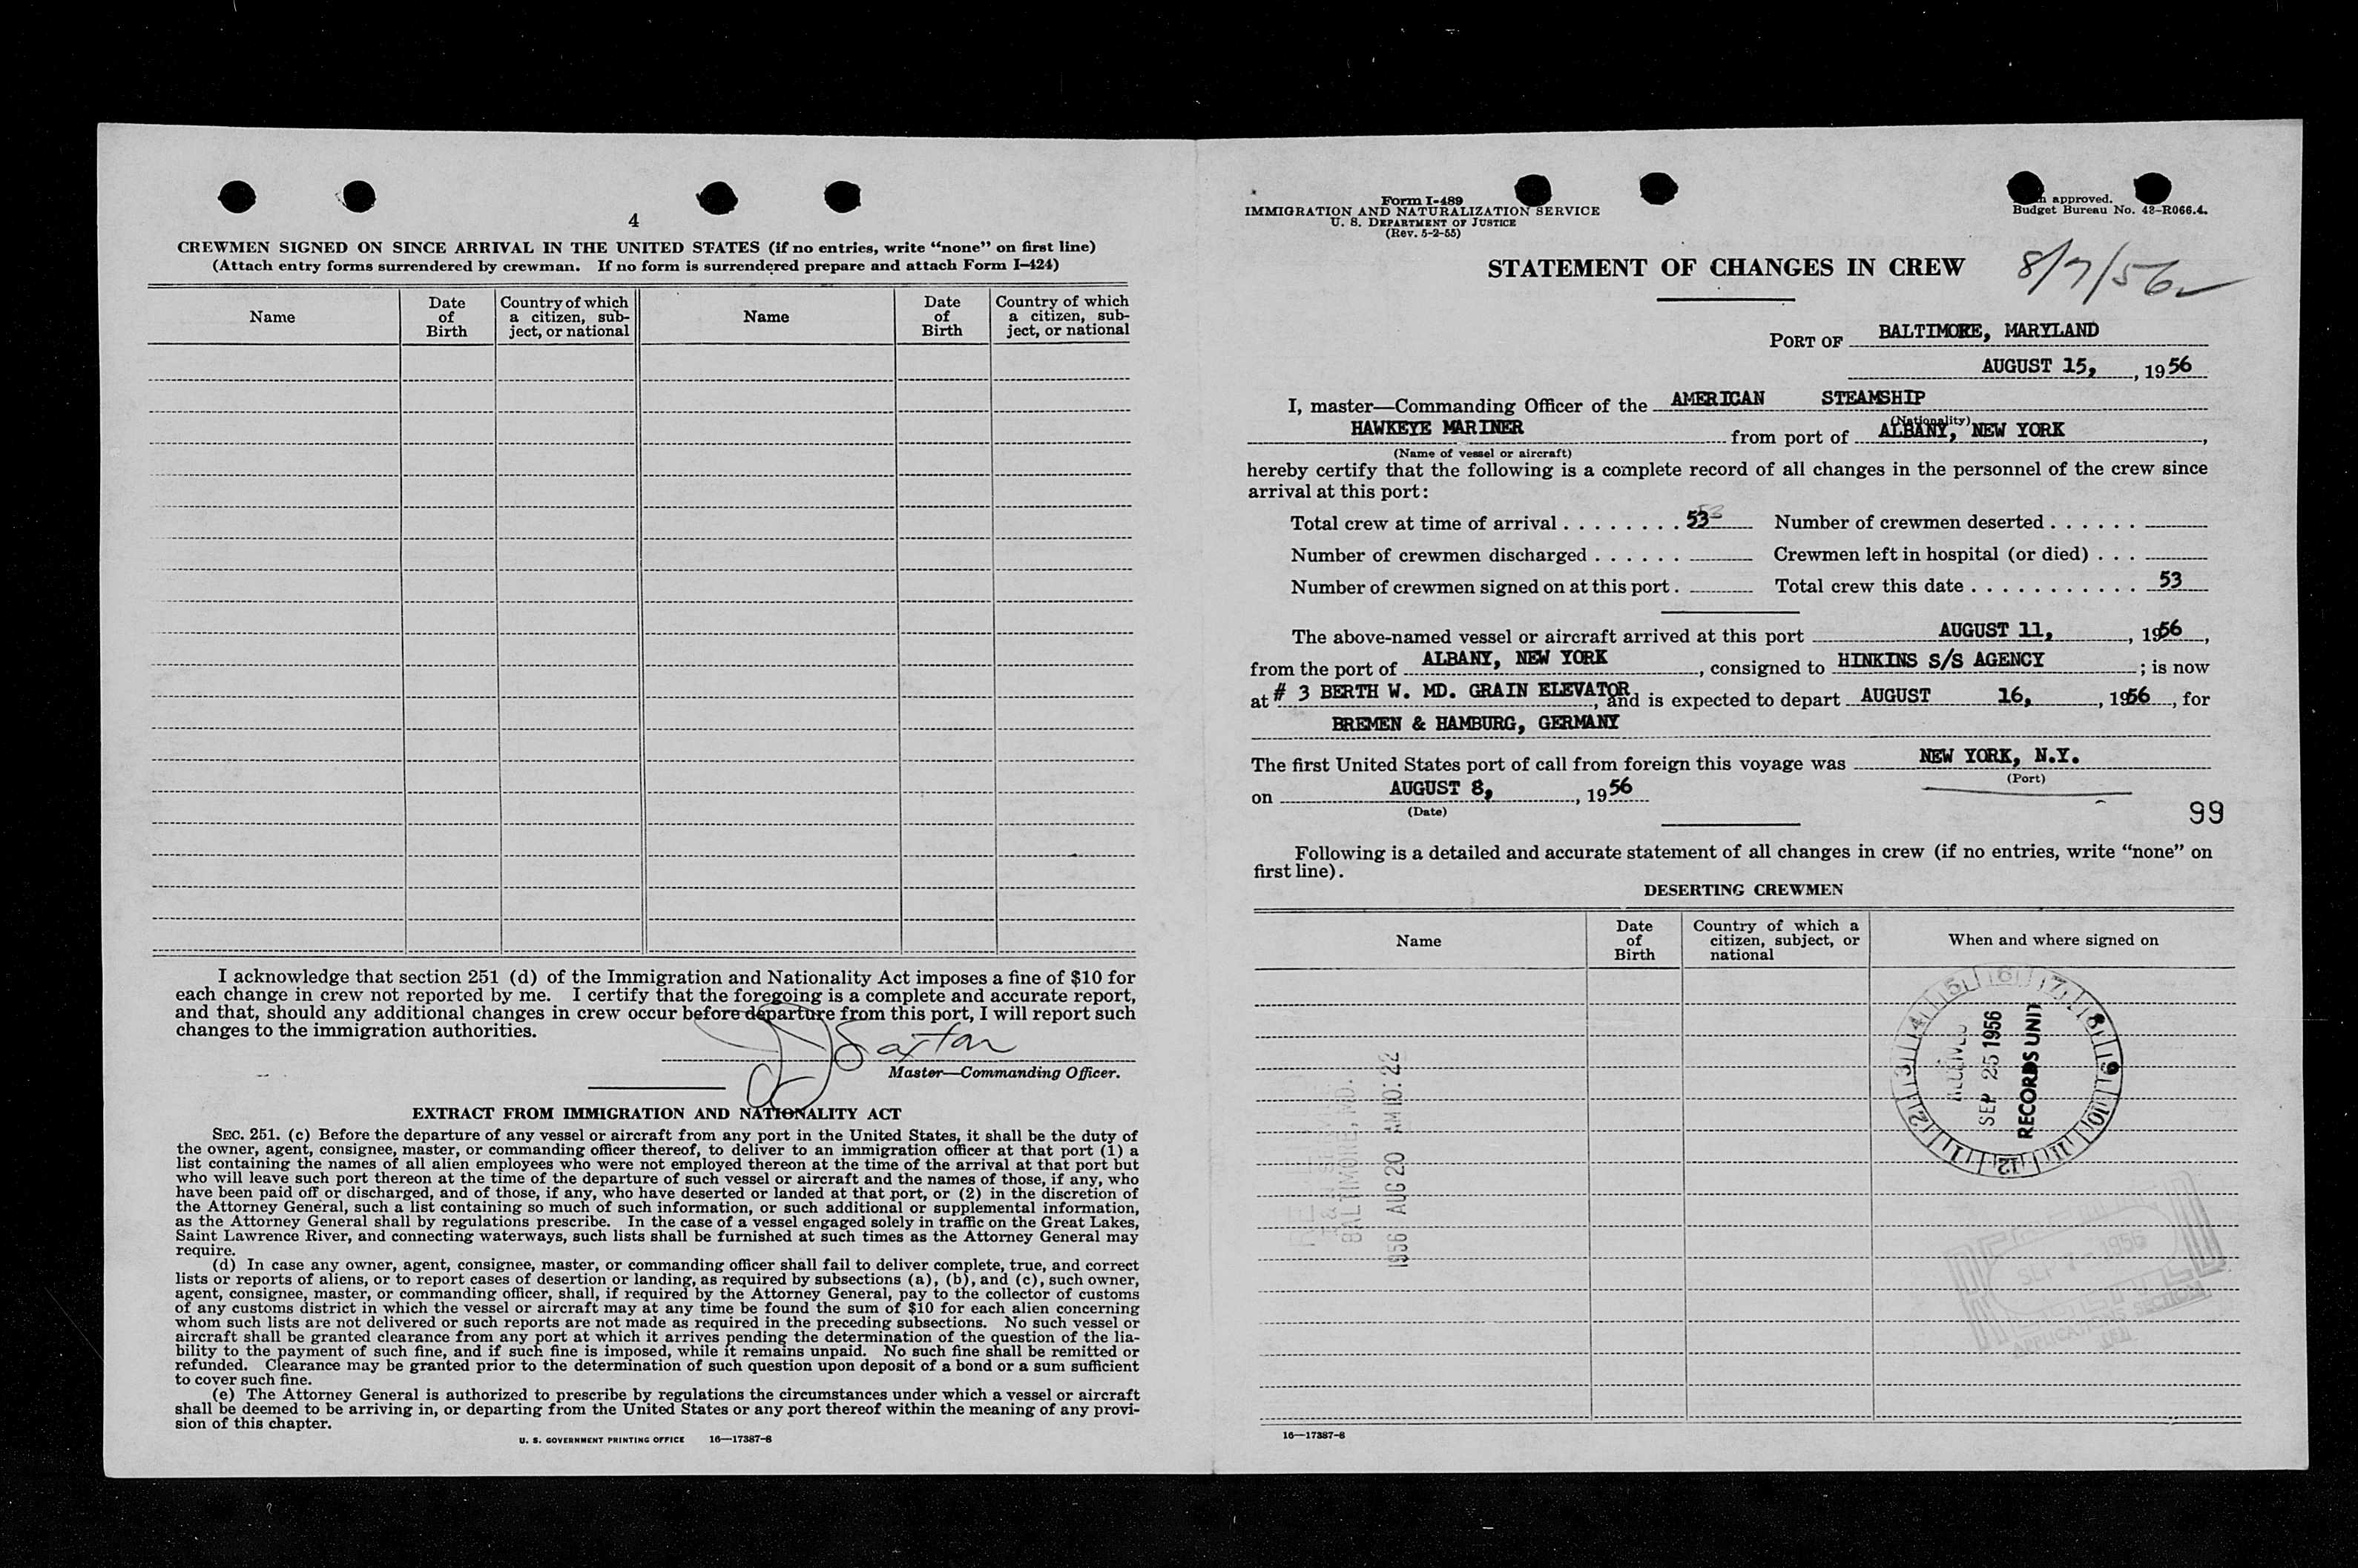 4
CREWMEN SIGNED ON SINCE ARRIVAL IN THE UNITED STATES (if no entries, write “none” on first line)
(Attach entry forms surrendered by crewman. If no form is surrendered prepare and attach Form I-424)
Name
Date of Birth
Country of which a citizen, sub-ject, or national
Name
Date of Birth
Country of which a citizen, sub-ject, or national
I acknowledge that section 251 (d) of the Immigration and Nationality Act imposes a fine of $10 for
each change in crew not reported by me. I certify that the foregoing is a complete and accurate report,
and that, should any additional changes in crew occur before departure from this port, I will report such
changes to the immigration authorities.
Saxton
Master—Commanding Officer.
EXTRACT FROM IMMIGRATION AND NATIONALITY ACT
SEC. 251. (c) Before the departure of any vessel or aircraft from any port in the United States, it shall be the duty of
the owner, agent, consignee, master, or commanding officer thereof, to deliver to an immigration officer at that port (1) a
list containing the names of all alien employees who were not employed thereon at the time of the arrival at that port but
who will leave such port thereon at the time of the departure of such vessel or aircraft and the names of those, if any, who
have been paid off or discharged, and of those, if any, who have deserted or landed at that port, or (2) in the discretion of
the Attorney General, such a list containing so much of such information, or such additional or supplemental information,
as the Attorney General shall by regulations prescribe. In the case of a vessel engaged solely in traffic on the Great Lakes,
Saint Lawrence River, and connecting waterways, such lists shall be furnished at such times as the Attorney General may
require.
(d) In case any owner, agent, consignee, master, or commanding officer shall fail to deliver complete, true, and correct
lists or reports of aliens, or to report cases of desertion or landing, as required by subsections (a), (b), and (c), such owner,
agent, consignee, master, or commanding officer, shall, if required by the Attorney General, pay to the collector of customs
of any customs district in which the vessel or aircraft may at any time be found the sum of $10 for each alien concerning
whom such lists are not delivered or such reports are not made as required in the preceding subsections. No such vessel or
aircraft shall be granted clearance from any port at which it arrives pending the determination of the question of the lia-
bility to the payment of such fine, and if such fine is imposed, while it remains unpaid. No such fine shall be remitted or
refunded. Clearance may be granted prior to the determination of such question upon deposit of a bond or a sum sufficient
to cover such fine.
(e) The Attorney General is authorized to prescribe by regulations the circumstances under which a vessel or aircraft
shall be deemed to be arriving in, or departing from the United States or any port thereof within the meaning of any provi-
sion of this chapter.
U. S. GOVERNMENT PRINTING OFFICE 16—17387-8
Form I-489
IMMIGRATION AND NATURALIZATION SERVICE
U. S. DEPARTMENT OF JUSTICE
(Rev. 5-2-55)
approved.
Budget Bureau No. 43-R066.4.
STATEMENT OF CHANGES IN CREW
8/7/56
PORT OF BALTIMORE, MARYLAND
AUGUST 15, , 1956
I, master—Commanding Officer of the AMERICAN STEAMSHIP
(Nationality)
HAWKEYE MARINER from port of ALBANY, NEW YORK ,
(Name of vessel or aircraft)
hereby certify that the following is a complete record of all changes in the personnel of the crew since
arrival at this port:
Total crew at time of arrival . . . . . . . . 53 53 Number of crewmen deserted . . . . . .
Number of crewmen discharged . . . . . . Crewmen left in hospital (or died) . . .
Number of crewmen signed on at this port . Total crew this date . . . . . . . . . . . 53
The above-named vessel or aircraft arrived at this port AUGUST 11, , 1956 ,
from the port of ALBANY, NEW YORK , consigned to HINKINS S/S AGENCY ; is now
at # 3 BERTH W. MD. GRAIN ELEVATOR , and is expected to depart AUGUST 16, , 1956 , for
BREMEN & HAMBURG, GERMANY
The first United States port of call from foreign this voyage was NEW YORK, N.Y.
(Port)
on AUGUST 8, , 1956
(Date)
99
Following is a detailed and accurate statement of all changes in crew (if no entries, write “none” on
first line).
DESERTING CREWMEN
Name
Date of Birth
Country of which a citizen, subject, or national
When and where signed on
3 4 5 6 7 8 9 10 11 12 1 2
RECEIVED
SEP 25 1956
RECORDS UNIT
BALTIMORE, MD.
1956 AUG 20 AM 10: 22
RECEIVED
SEP 1956
APPLICATIONS SECTION
16—17387-8